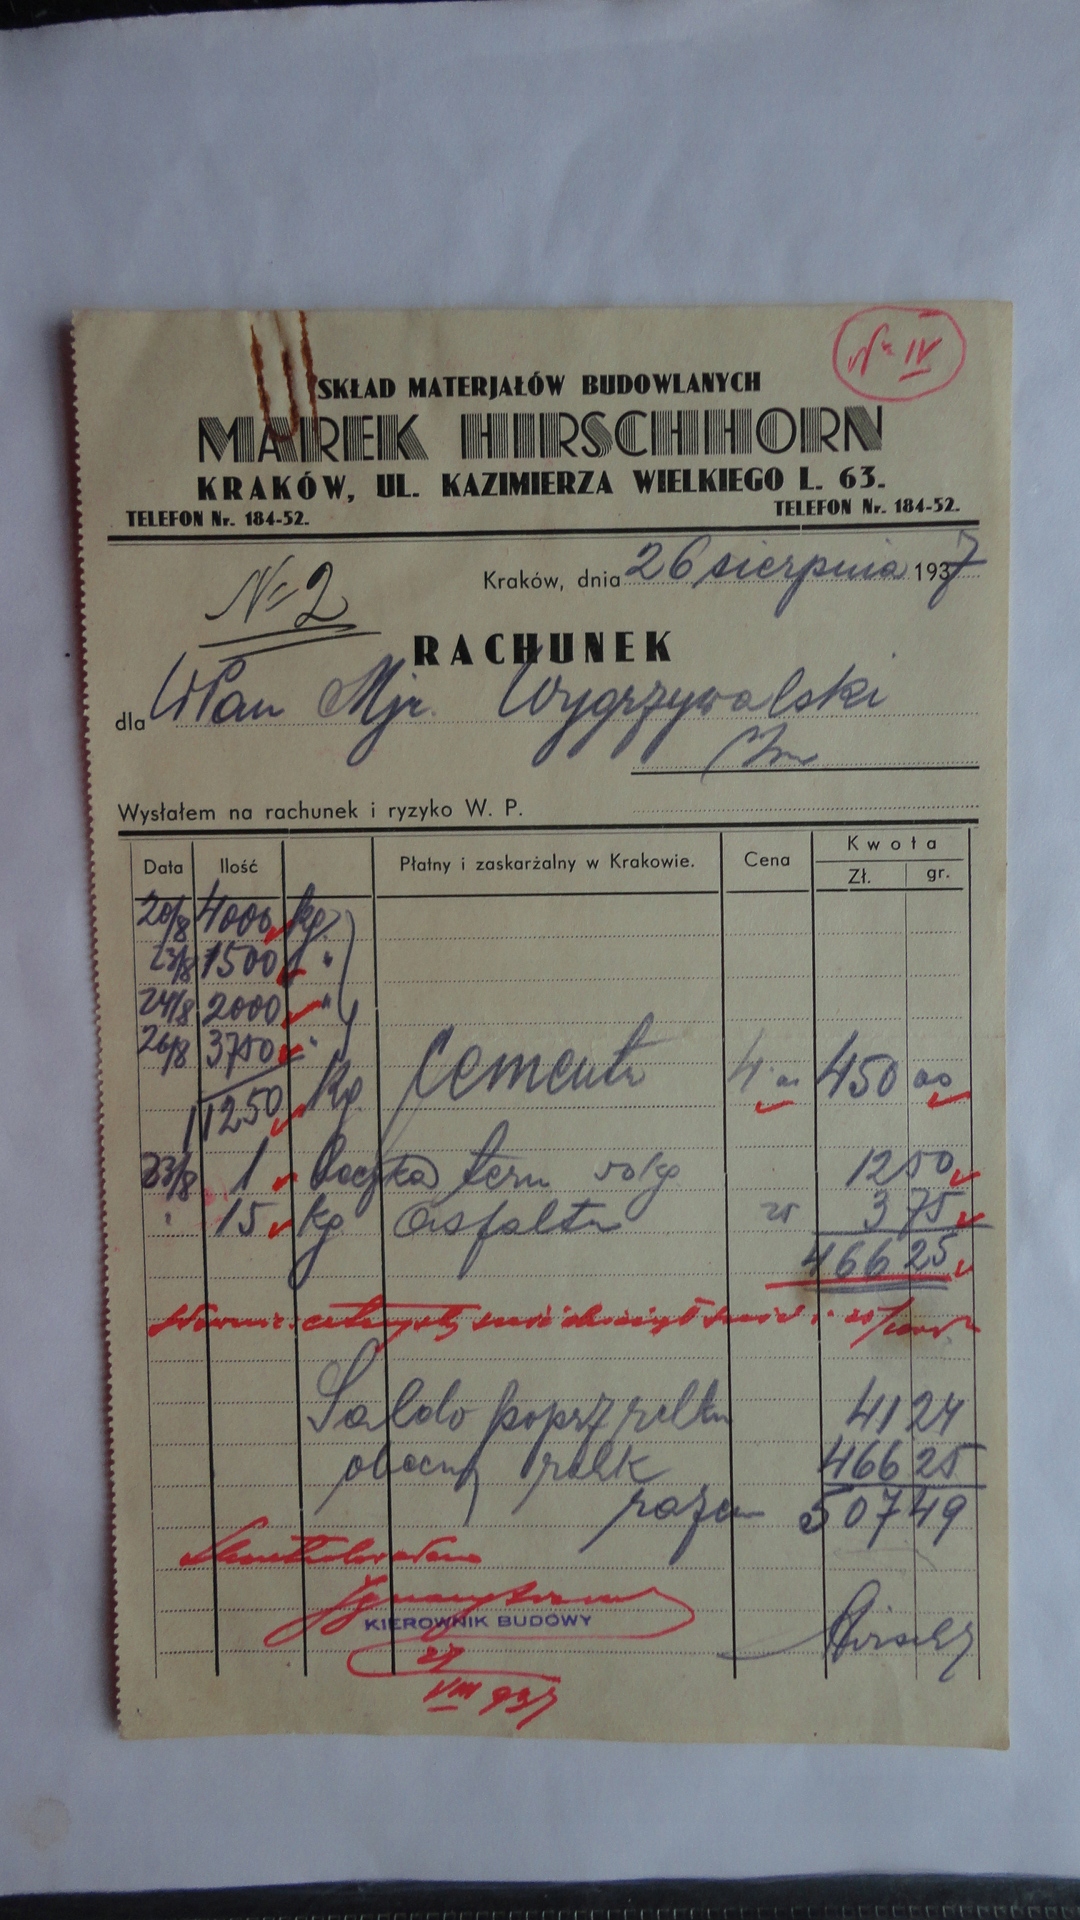 Nr IV
SKŁAD MATERJAŁÓW BUDOWLANYCH
MAREK HIRSCHHORN
KRAKÓW, UL. KAZIMIERZA WIELKIEGO L. 63.
TELEFON Nr. 184-52. TELEFON Nr. 184-52.
Kraków, dnia 26 sierpnia 1937
N= 2
RACHUNEK
dla WPan Mjr. Wygrzywalski
Wysłałem na rachunek i ryzyko W. P.
Data Ilość Płatny i zaskarżalny w Krakowie. Cena Kwota
Zł. gr.
20/8 4000 kg.
23/8 1500 "
24/8 2000 "
26/8 3750 "
11250 kg Cementu 4.00 450 00
23/8 1 beczka teru 50 kg 12 50
" 15 kg asfaltu 25 3 75
466 25
Saldo poprz relku 41 24
obecny 466 25
razem 507 49
KIEROWNIK BUDOWY
27
VIII 937